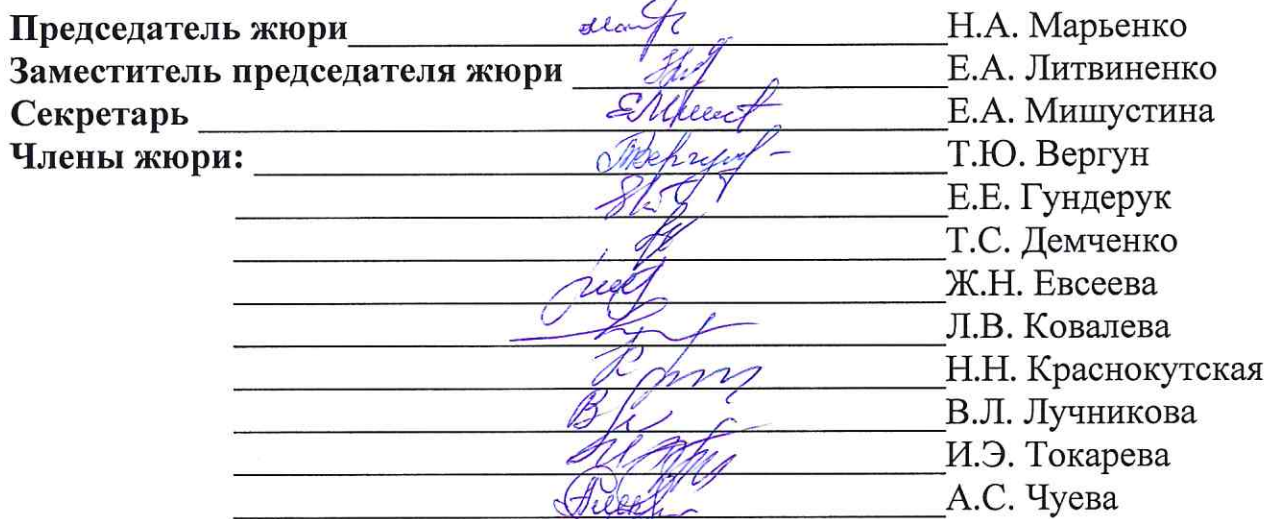 Председатель жюри Н.А. Марьенко
Заместитель председателя жюри Е.А. Литвиненко
Секретарь Е.А. Мишустина
Члены жюри: Т.Ю. Вергун
Е.Е. Гундерук
Т.С. Демченко
Ж.Н. Евсеева
Л.В. Ковалева
Н.Н. Краснокутская
В.Л. Лучникова
И.Э. Токарева
А.С. Чуева